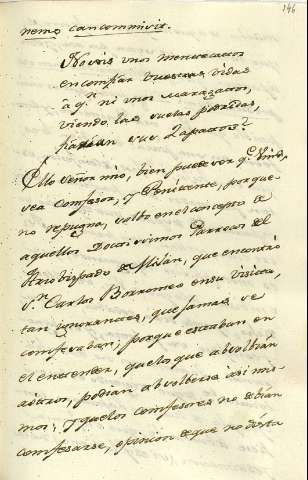 146
nemo cancommivit.
No veis unos mentecatos
en confiar vuestras vidas
à q.n ni unos
viendo las suelas podridas,
fiarian sus Zapatos?
Ello señor mio, bien puede ser q.e Vmd.
sea Confesor, y Penitente, porque
no repugna, salbo en el concepto a
aquellos Doctissimos Parrocos del
Arzobispado de Milàn, que encontrò
S.n Carlos Borromeo en su visita,
tan ignorantes, que jamas se
confesaban; porque estaban en
el entender, que los que absolbian
à otros, podian absolberse asi mis-
mos; y que los confesores no debian
confesarse, opinion de que no dista